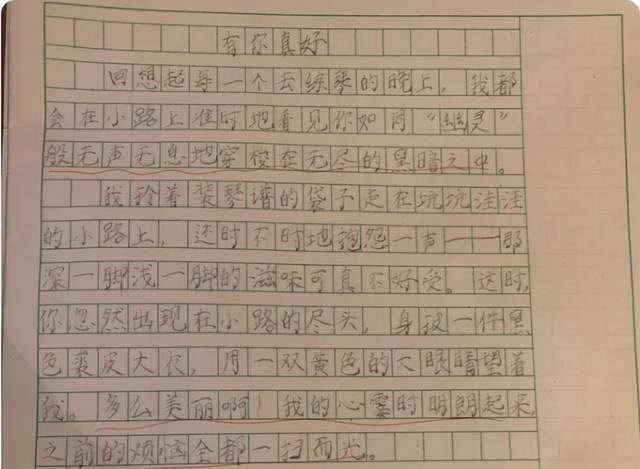 有你真好
回想起每一个去练琴的晚上，我都
会在小路上准时地看见你如同“幽灵”
般无声无息地穿梭在无尽的黑暗之中。
我拎着装琴谱的袋子走在坑坑洼洼
的小路上，还时不时地抱怨一声——那
深一脚浅一脚的滋味可真不好受。这时，
你忽然出现在小路的尽头，身披一件黑
色裘皮大衣，用一双黄色的大眼睛望着
我。多么美丽啊！我的心霎时明朗起来，
之前的烦恼全都一扫而光。